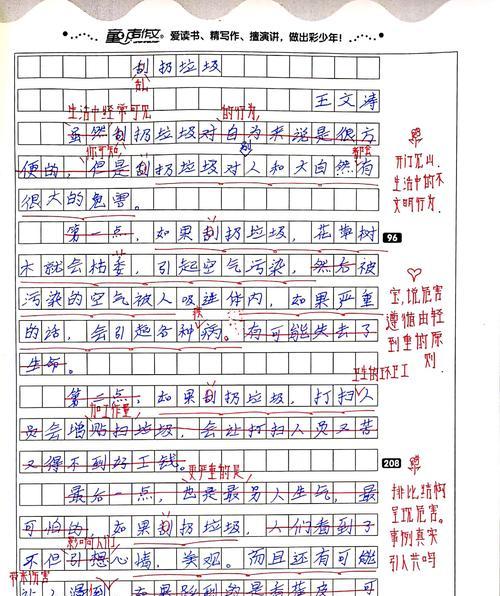 童声作文。爱读书、精写作、擅演讲,做出彩少年!
刮扔垃圾
乱
王文涛
生活中经常可见 的行为,
虽然刮扔垃圾对自为来说是很方
你可知 都会
便的,但是刮扔垃圾对人和大自然有
很大的危害。
开门见山,
生活中的不
文明行为.
第一点,如果刮扔垃圾,花草树
96
木就会枯委,引起空气污染,然后被
污染的空气被人吸进体内,如果严重
疾
的话,会引起各种病。有可能失去了
生命。
宝,说危害
遵循由轻
到重的原
则
卫生的环卫工
第二点,如果刮扔垃圾,打扫人
加工作量,
员会增贴扫垃圾,会让打扫人员又苦
又得不到好工钱。
208
更严重的是
最后一点,也是最另人生气,最
可怕的,如果刮扔垃圾,人们看到了
影响人们
不但引想心情,美观。而且还有可能
带来伤害
排比结构
呈现危害。
事例真实
引人共鸣